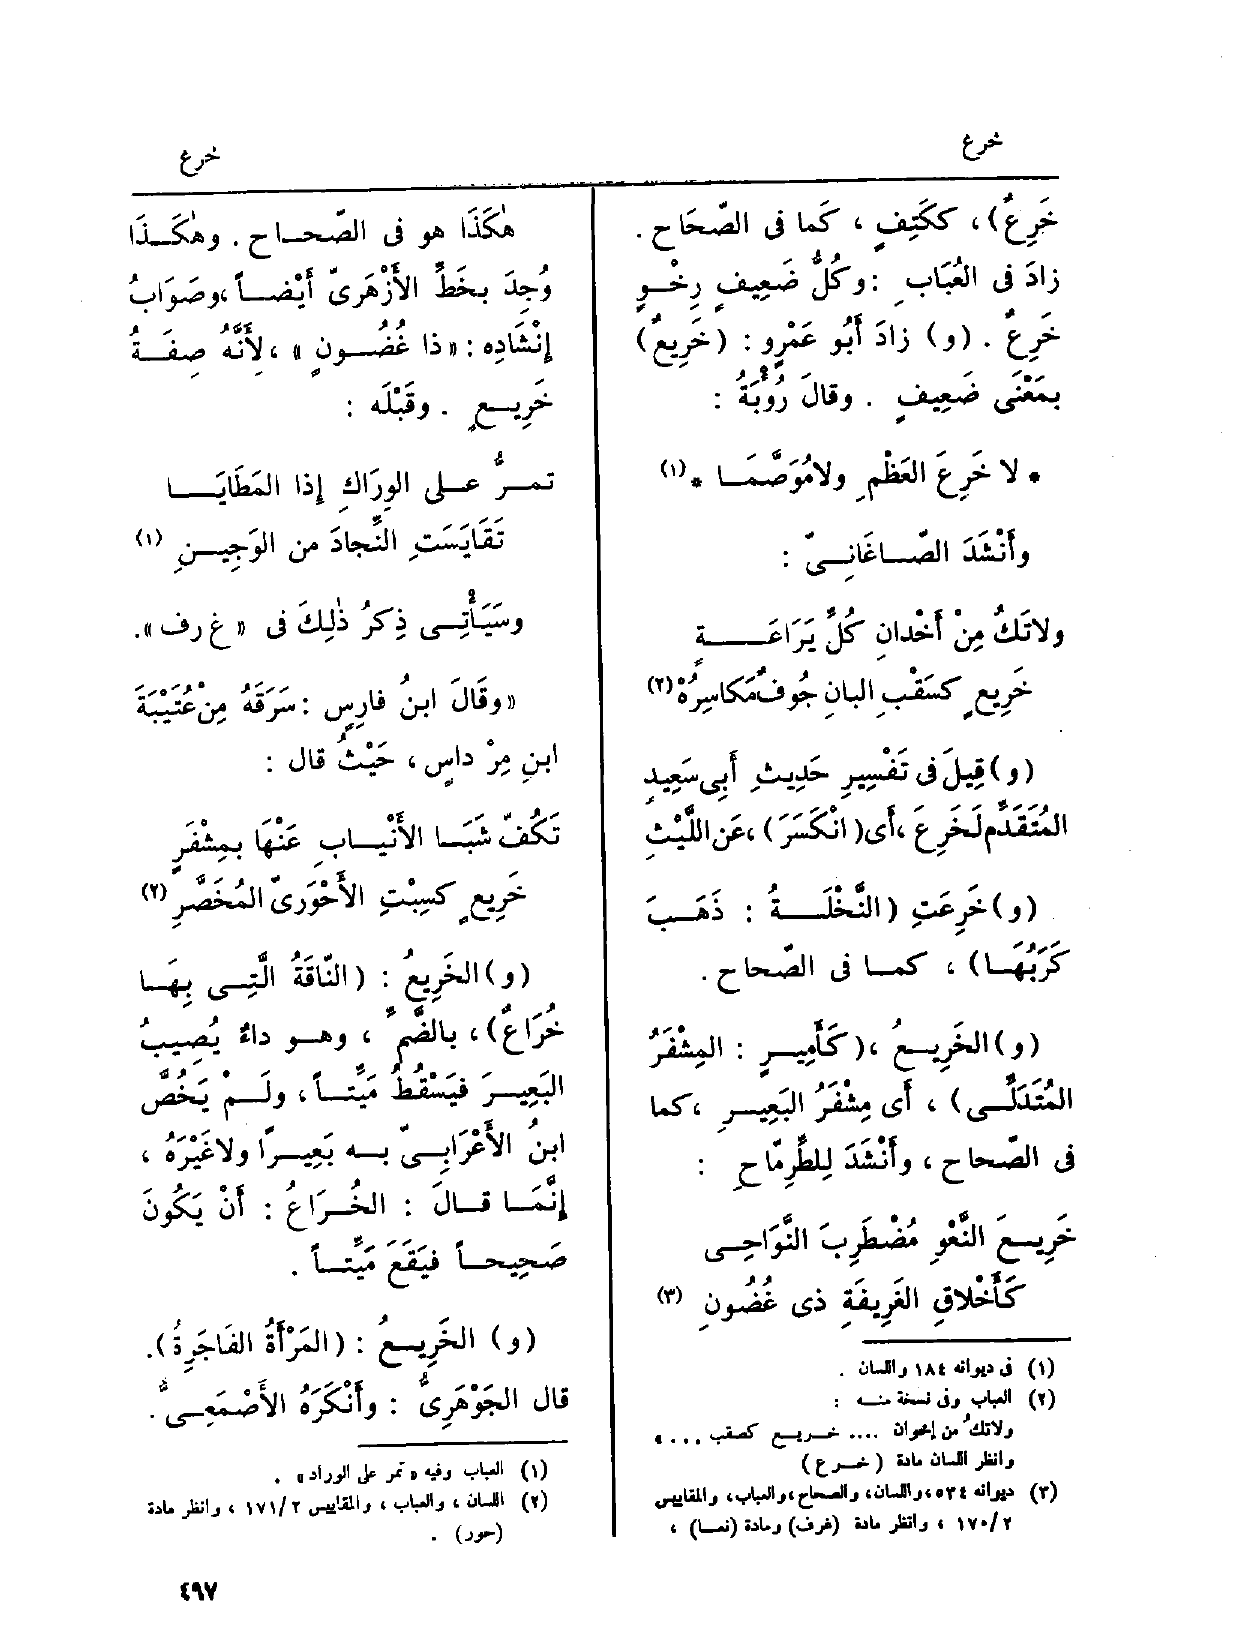 خرع
خرع
خَرِعٌ) ، ككَتِفٍ ، كَما فى الصّحَاح .
زادَ فى العُبَابِ : وكُلُّ ضَعِيفٍ رِخْوٍ
خَرِعٌ . (و) زادَ أَبُو عَمْرٍو : (خَرِيعٌ)
بمَعْنَى ضَعِيفٍ . وقالَ رُؤْبَةُ :
* لا خَرِعَ العَظْمِ ولا مُوَصَّمَا * (١)
وأَنْشَدَ الصّاغَانِىّ :
ولاتَكُ مِنْ أَخْدانِ كُلِّ يَرَاعَةٍ
خَرِيعٍ كسَقْبِ البانِ جُوفٌ مَكاسِرُهْ (٢)
(و) قِيلَ فى تَفْسِيرِ حَدِيثِ أَبِى سَعِيدٍ
المُتَقَدِّم لَخَرِعَ ، أَى (انْكَسَرَ) ، عَن اللَّيْثِ
(و) خَرِعَتِ (النَّخْلَةُ : ذَهَبَ
كَرَبُهَا) ، كما فى الصّحاح .
(و) الخَرِيعُ ، (كَأَمِيرٍ : المِشْفَرُ
المُتَدَلِّى) ، أَى مِشْفَرُ البَعِيرِ ، كما
فى الصّحاح ، وأَنْشَدَ لِلطِّرِمّاحِ :
خَرِيعَ النَّعْوِ مُضْطَرِبَ النَّوَاحِى
كَأَخْلاقِ الغَرِيفَةِ ذى غُضُونِ (٣)
(١) فى ديوانه ١٨٤ واللسان .
(٢) العباب وفى نسخة منه :
ولاتكُ من إخوان .... خريع كصقب . . . .
وانظر اللسان مادة (خرع)
(٣) ديوانه ٥٣٤ ، واللسان ، والصحاح ، والعباب ، والمقاييس
١٧٠/٢ ، وانظر مادة (غرف) ومادة (نعا) ،
هٰكَذَا هو فى الصّحاح . وهٰكَذَا
وُجِدَ بخَطِّ الأَزْهَرِىّ أَيْضاً ، وصَوَابُ
إِنْشَادِه : «ذا غُضُونٍ » ، لِأَنَّهُ صِفَةُ
خَرِيعٍ . وقَبْلَه :
تمرُّ على الوِرَاكِ إِذا المَطَايَا
تَقَايَسَتِ النِّجَادَ من الوَجِينِ (١)
وسَيَأْتِى ذِكرُ ذٰلِكَ فى « غ رف ».
«وقَالَ ابنُ فارِسٍ : سَرَقَهُ مِن عُتَيْبَةَ
ابنِ مِرْ داسٍ ، حَيْثُ قال :
تَكُفّ شَبَا الأَنْيابِ عَنْهَا بمِشْفَرٍ
خَرِيعٍ كسِبْتِ الأَحْوَرِىّ المُخَصَّرِ (٢)
(و) الخَرِيعُ : (النّاقَةُ الَّتِى بِهَا
خُرَاعٌ) ، بالضَّمِّ ، وهو داءٌ يُصِيبُ
البَعِيرَ فيَسْقُطُ مَيِّتاً ، ولَمْ يَخُصَّ
ابنُ الأَعْرَابِىّ به بَعِيرًا ولا غَيْرَهُ ،
إِنَّمَا قالَ : الخُرَاعُ : أَنْ يَكُونَ
صَحِيحاً فيَقَعَ مَيِّتاً .
(و) الخَرِيعُ : (المَرْأَةُ الفَاجَرِةُ).
قال الجَوْهَرِىُّ : وأَنْكَرَهُ الأَصْمَعِىُّ .
(١) العباب وفيه «تمر على الوراد» .
(٢) اللسان ، والعباب ، والمقاييس ١٧١/٢ ، وانظر مادة
(حور) .
٤٩٧